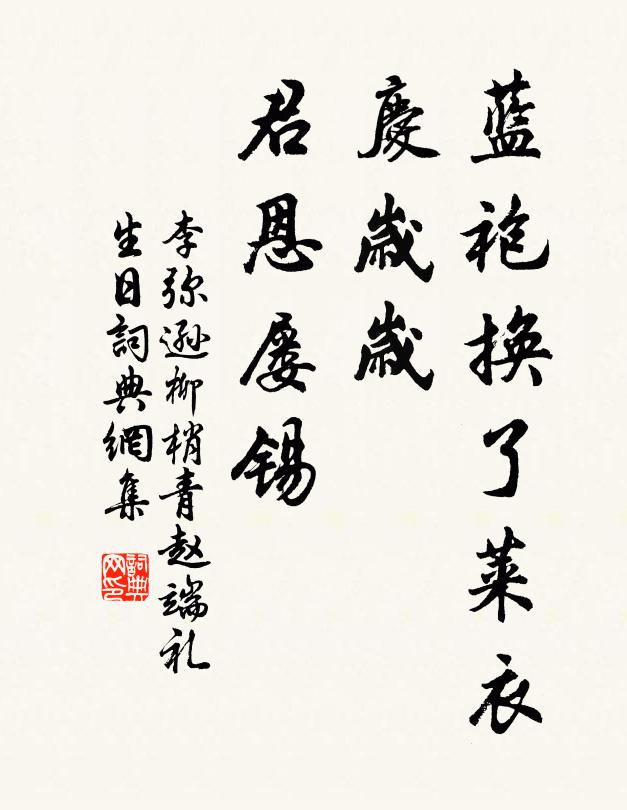 藍袍換了萊衣
慶歲歲
君恩屢錫
李弥遜柳梢青赵端礼
生日詞典網集
詞典网印